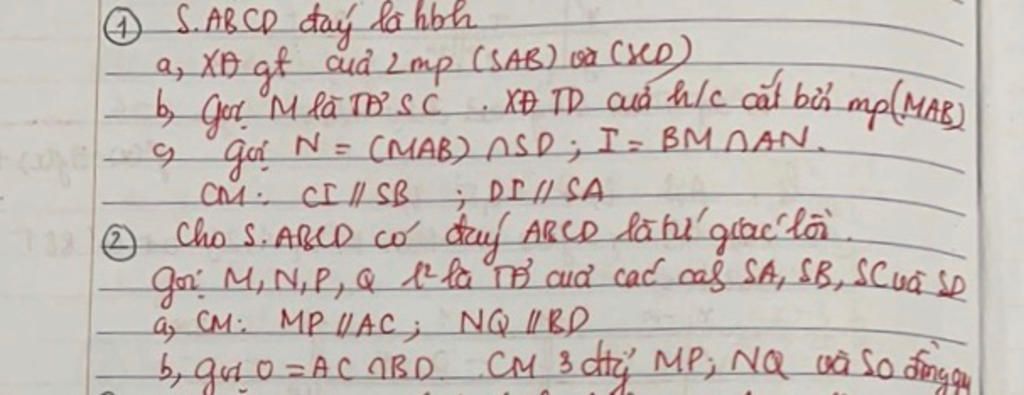 ① S.ABCD đáy là hbh
a, XĐ gt của 2mp (SAB) và (SCD)
b, Gọi M là TĐ SC . XĐ TD của h/c cắt bởi mp(MAB)
c, Gọi N = (MAB) ∩ SD ; I = BM ∩ AN.
CM : CI // SB ; DI // SA
② Cho S.ABCD có đáy ABCD là tứ giác lồi.
Gọi M, N, P, Q l² là TĐ của các cạnh SA, SB, SC và SD
a, CM : MP // AC ; NQ // BD
b, Gọi O = AC ∩ BD . CM 3 đt MP; NQ và SO đồng quy